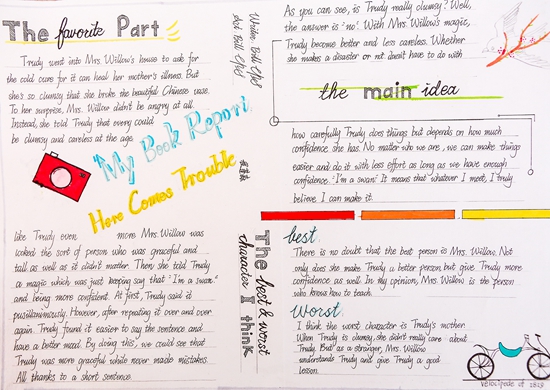 The favorite Part
Trudy went into Mrs. Willow's house to ask for
the cold cure for it can heal her mother's illness. But
she's so clumsy that she broke the beautiful Chinese vase.
To her surprise, Mrs. Willow didn't be angry at all.
Instead, she told Trudy that every could
be clumsy and careless at the age
"My Book Report
Here Comes Trouble
like Trudy even more Mrs. Willow was
looked the sort of person who was graceful and
tall as well as it didn't matter. Then she told Trudy
a magic which was just keeping say that "I'm a swan"
and being more confident. At first, Trudy said it
pusillanimously. However, after repeating it over and over
again. Trudy found it easier to say the sentence and
have a better mood. By doing this, we could see that
Trudy was more graceful while never made mistakes.
All thanks to a short sentence.
Writer: Bill
The best & worst
character I think
As you can see, is Trudy really clumsy? Well,
the answer is 'no'. With Mrs. Willow's magic,
Trudy become better and less careless. Whether
she makes a disaster or not doesn't have to do with
the main idea
how carefully Trudy does things but depends on how much
confidence she has. No matter who we are, we can make things
easier and do it with less effort as long as we have enough
confidence. 'I'm a swan.' It means that whatever I meet, I truly
believe I can make it.
best.
There is no doubt that the best person is Mrs. Willow. Not
only does she make Trudy a better person but give Trudy more
confidence as well. In my opinion, Mrs. Willow is the person
who knows how to teach.
Worst.
I think the worst character is Trudy's mother.
When Trudy is clumsy, she didn't really care about
Trudy. But as a stranger, Mrs. Willow
understands Trudy and give Trudy a good
lesson.
velocipede of